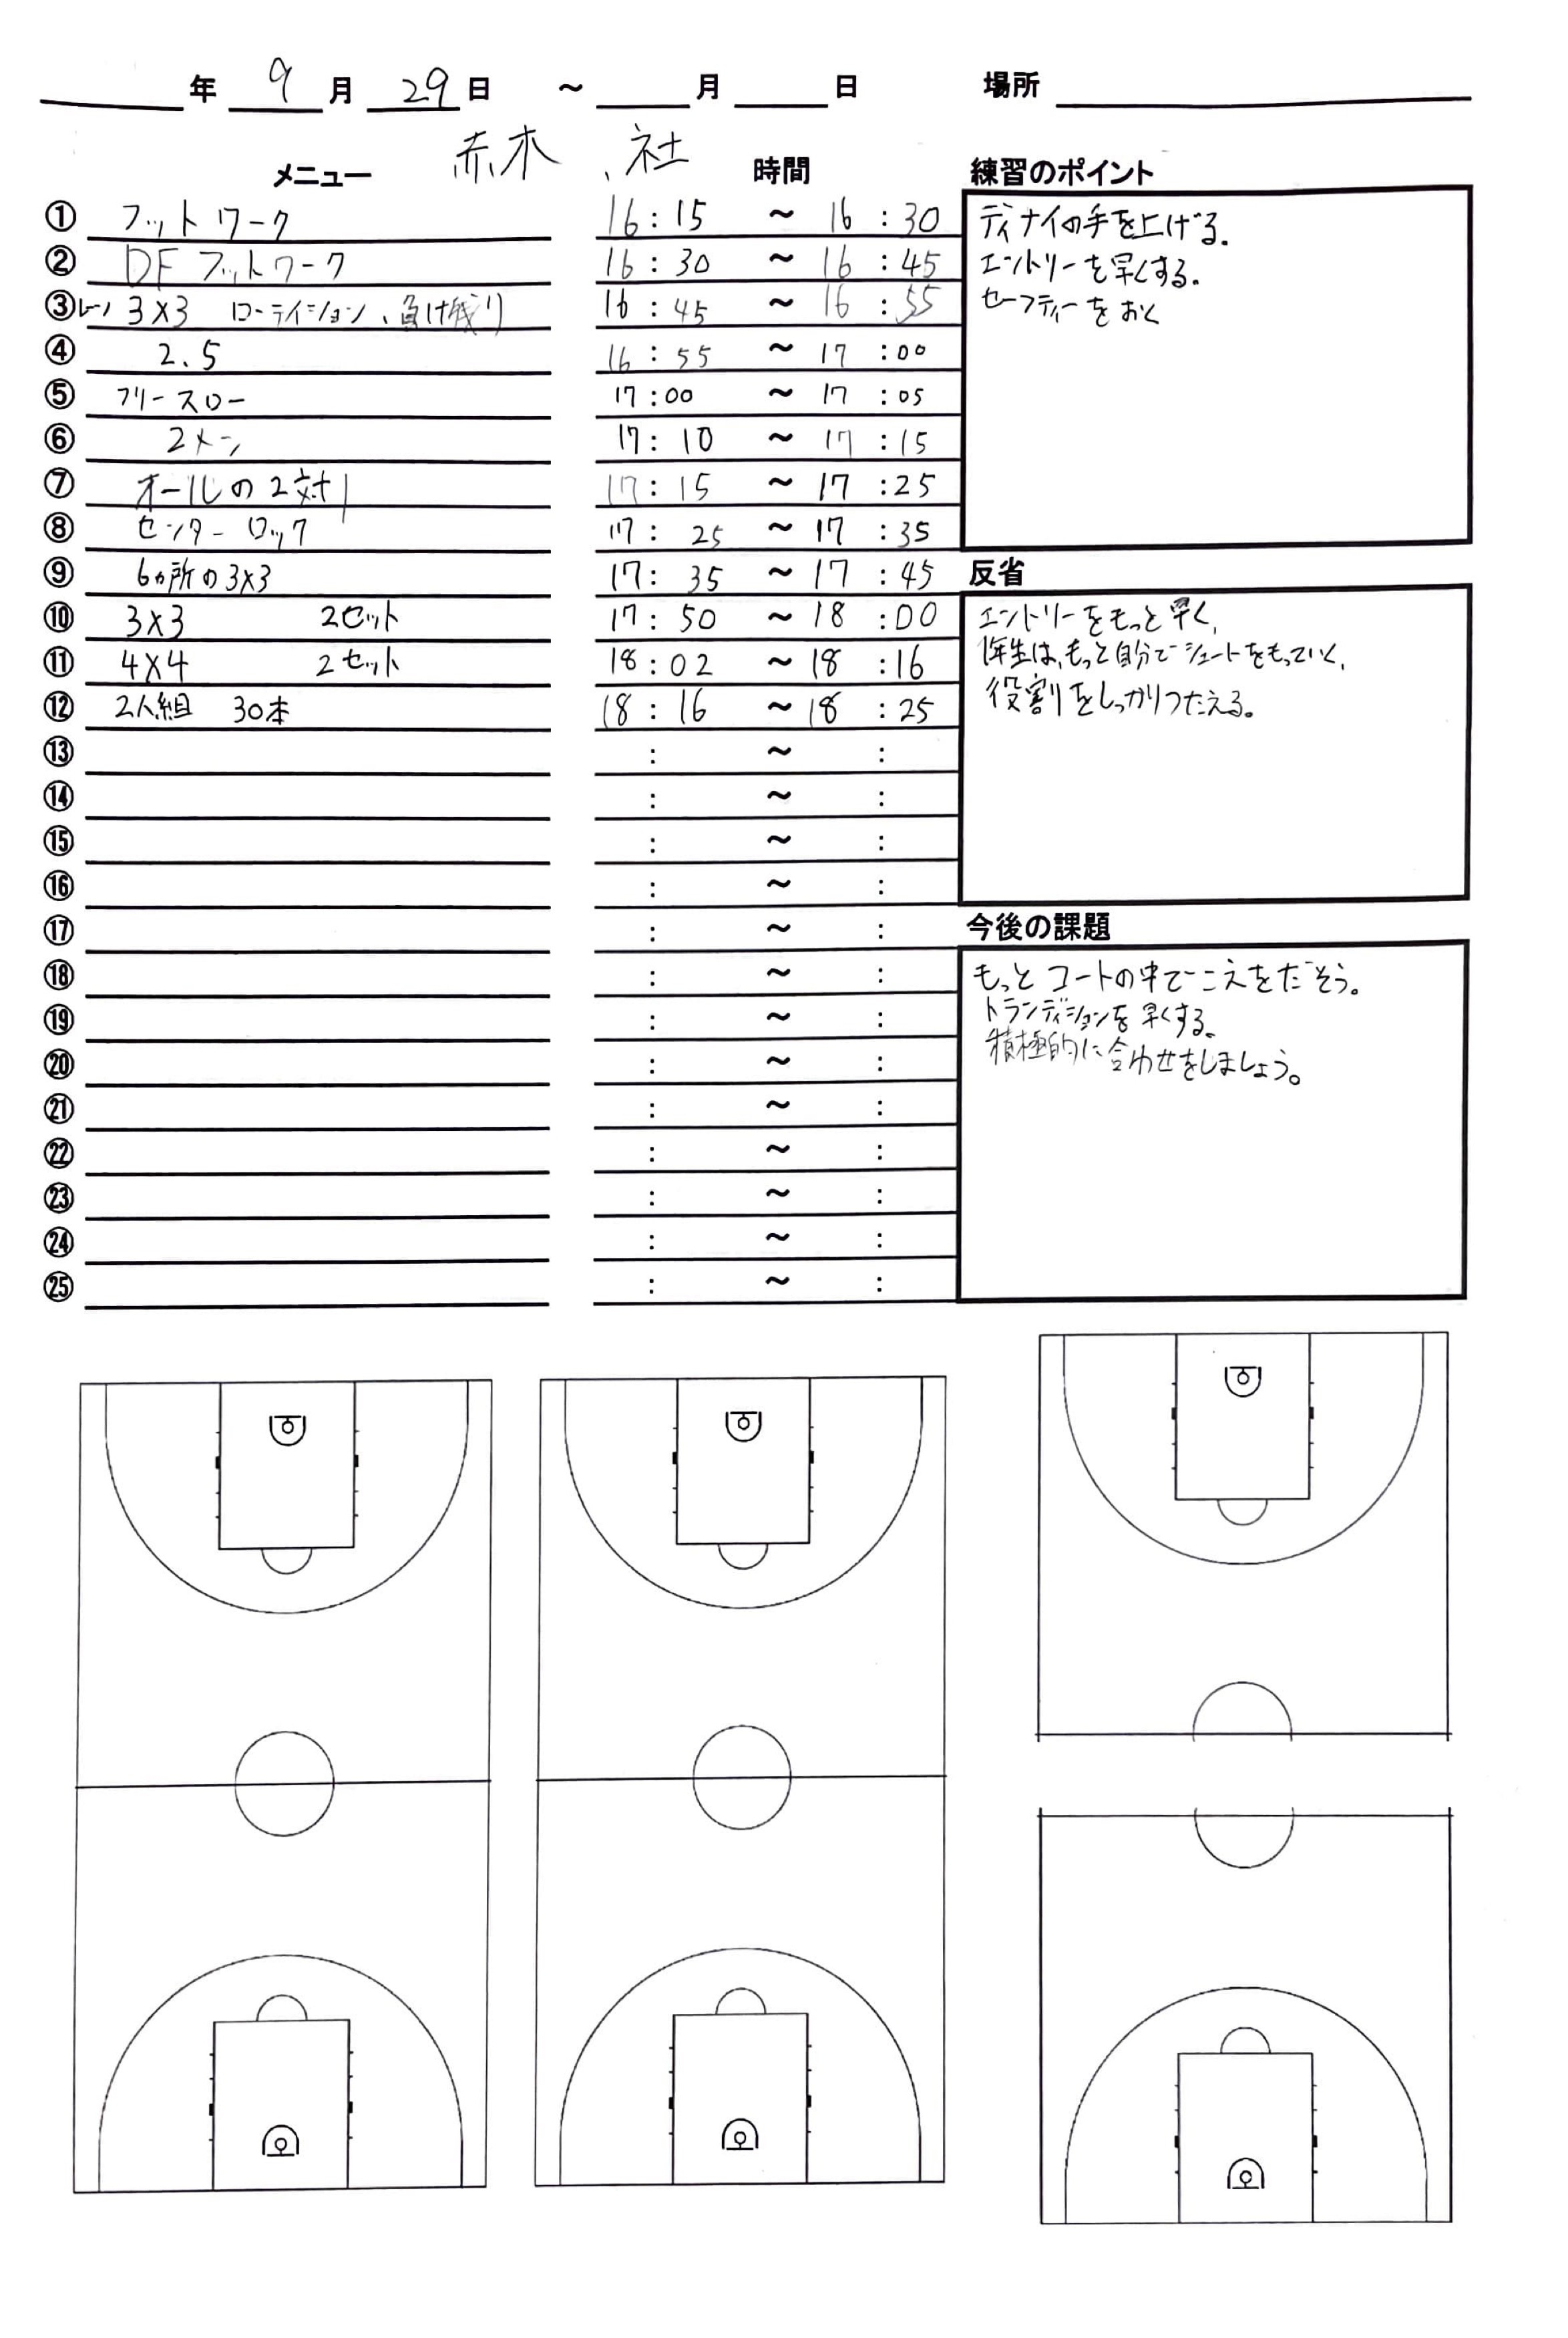 年 9月 29日 ～ 月 日 場所
赤木、社
メニュー 時間 練習のポイント
① フットワーク 16:15 ～ 16:30
② DFフットワーク 16:30 ～ 16:45
③ 3×3 ローテイション、負け残り 16:45 ～ 16:55
④ 2.5 16:55 ～ 17:00
⑤ フリースロー 17:00 ～ 17:05
⑥ 2メン 17:10 ～ 17:15
⑦ オールの2対1 17:15 ～ 17:25
⑧ センターロック 17:25 ～ 17:35
⑨ 6ヵ所の3×3 17:35 ～ 17:45
⑩ 3×3 2セット 17:50 ～ 18:00
⑪ 4×4 2セット 18:02 ～ 18:16
⑫ 2人組 30本 18:16 ～ 18:25
⑬ : ～ :
⑭ : ～ :
⑮ : ～ :
⑯ : ～ :
⑰ : ～ :
⑱ : ～ :
⑲ : ～ :
⑳ : ～ :
㉑ : ～ :
㉒ : ～ :
㉓ : ～ :
㉔ : ～ :
㉕ : ～ :
ディナイの手を上げる。
エントリーを早くする。
セーフティーをおく
反省
エントリーをもっと早く、
1年生は、もっと自分でシュートをもっていく、
役割をしっかりつたえる。
今後の課題
もっとコートの中でこえをだそう。
トランディションを早くする。
積極的に合わせをしましょう。